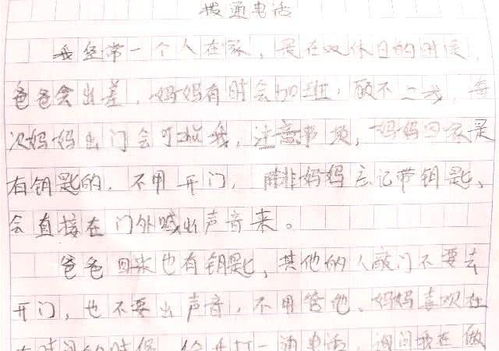 拨通电话
我经常一个人在家，是在双休日的时候，
爸爸会出差，妈妈有时会加班，放不二我，每
次妈妈出门会叮嘱我，注意事项，妈妈回家是
有钥匙的，不用开门，除非妈妈忘记带钥匙，
会直接在门外喊出声音来。
爸爸回来也有钥匙，其他的人敲门不要去
开门，也不要出声音，不用管他。妈妈喜欢在
时间的时候，给我打一通电话，询问我在做